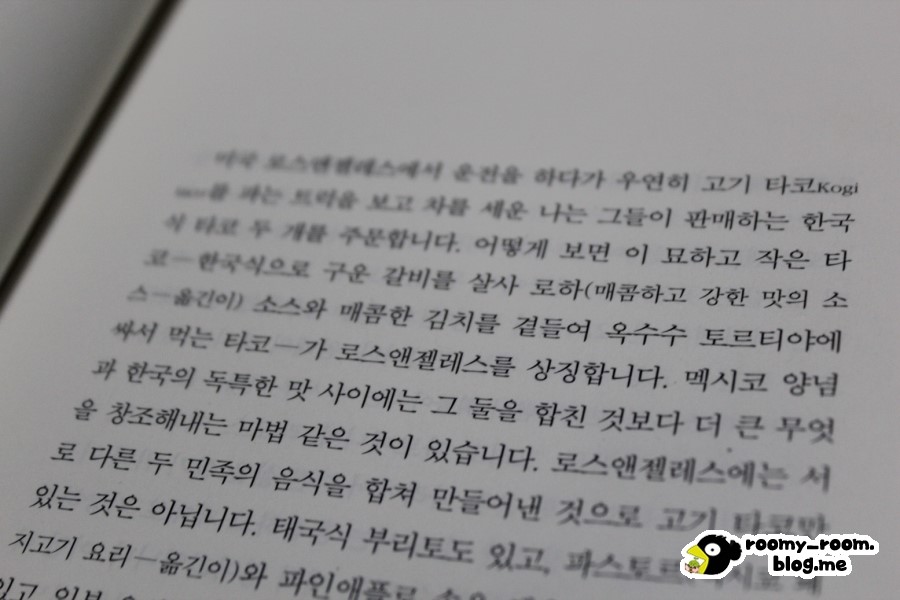 미국 로스앤젤레스에서 운전을 하다가 우연히 고기 타코Kogi
taco를 파는 트럭을 보고 차를 세운 나는 그들이 판매하는 한국
식 타코 두 개를 주문합니다. 어떻게 보면 이 묘하고 작은 타
코—한국식으로 구운 갈비를 살사 로하(매콤하고 강한 맛의 소
스—옮긴이) 소스와 매콤한 김치를 곁들여 옥수수 토르티야에
싸서 먹는 타코—가 로스앤젤레스를 상징합니다. 멕시코 양념
과 한국의 독특한 맛 사이에는 그 둘을 합친 것보다 더 큰 무엇
을 창조해내는 마법 같은 것이 있습니다. 로스앤젤레스에는 서
로 다른 두 민족의 음식을 합쳐 만들어낸 것으로 고기 타코만
있는 것은 아닙니다. 태국식 부리토도 있고, 파스토르
지고기 요리—옮긴이)와 파인애플로
있고
roomy_room.
blog.me